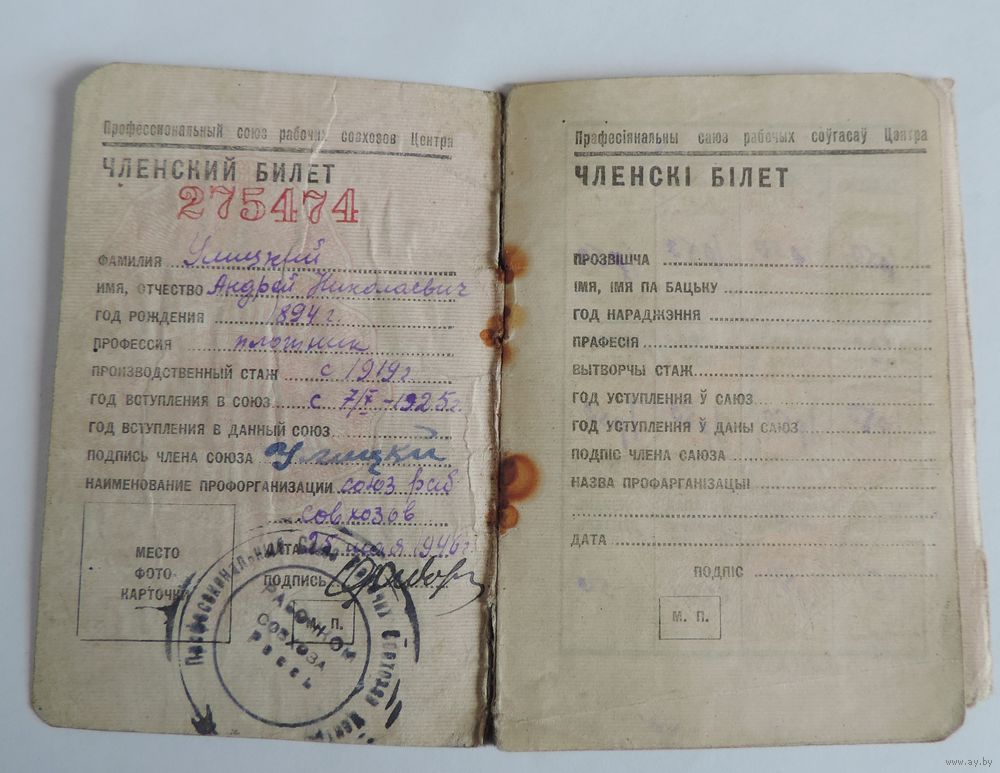 Профессиональный союз рабочих совхозов Центра
ЧЛЕНСКИЙ БИЛЕТ
275474
ФАМИЛИЯ Улицкий
ИМЯ, ОТЧЕСТВО Андрей Николаевич
ГОД РОЖДЕНИЯ 1894 г.
ПРОФЕССИЯ плотник
ПРОИЗВОДСТВЕННЫЙ СТАЖ с 1919 г
ГОД ВСТУПЛЕНИЯ В СОЮЗ с 7/X-1925 г.
ГОД ВСТУПЛЕНИЯ В ДАННЫЙ СОЮЗ
ПОДПИСЬ ЧЛЕНА СОЮЗА Улицки
НАИМЕНОВАНИЕ ПРОФОРГАНИЗАЦИИ союз раб
совхозов
ДАТА 25 мая 1946 г.
МЕСТО
ФОТО-
КАРТОЧКИ
ПОДПИСЬ
П.
РАБОЧКОМ
СОВХОЗА
Профессиональный Союз Рабочих Совхозов Центра
Прафесіянальны саюз рабочых соўгасаў Цэнтра
ЧЛЕНСКІ БІЛЕТ
ПРОЗВІШЧА
ІМЯ, ІМЯ ПА БАЦЬКУ
ГОД НАРАДЖЭННЯ
ПРАФЕСІЯ
ВЫТВОРЧЫ СТАЖ
ГОД УСТУПЛЕННЯ Ў САЮЗ
ГОД УСТУПЛЕННЯ Ў ДАНЫ САЮЗ
ПОДПІС ЧЛЕНА САЮЗА
НАЗВА ПРАФАРГАНІЗАЦЫІ
ДАТА
ПОДПІС
М. П.
www.ay.by